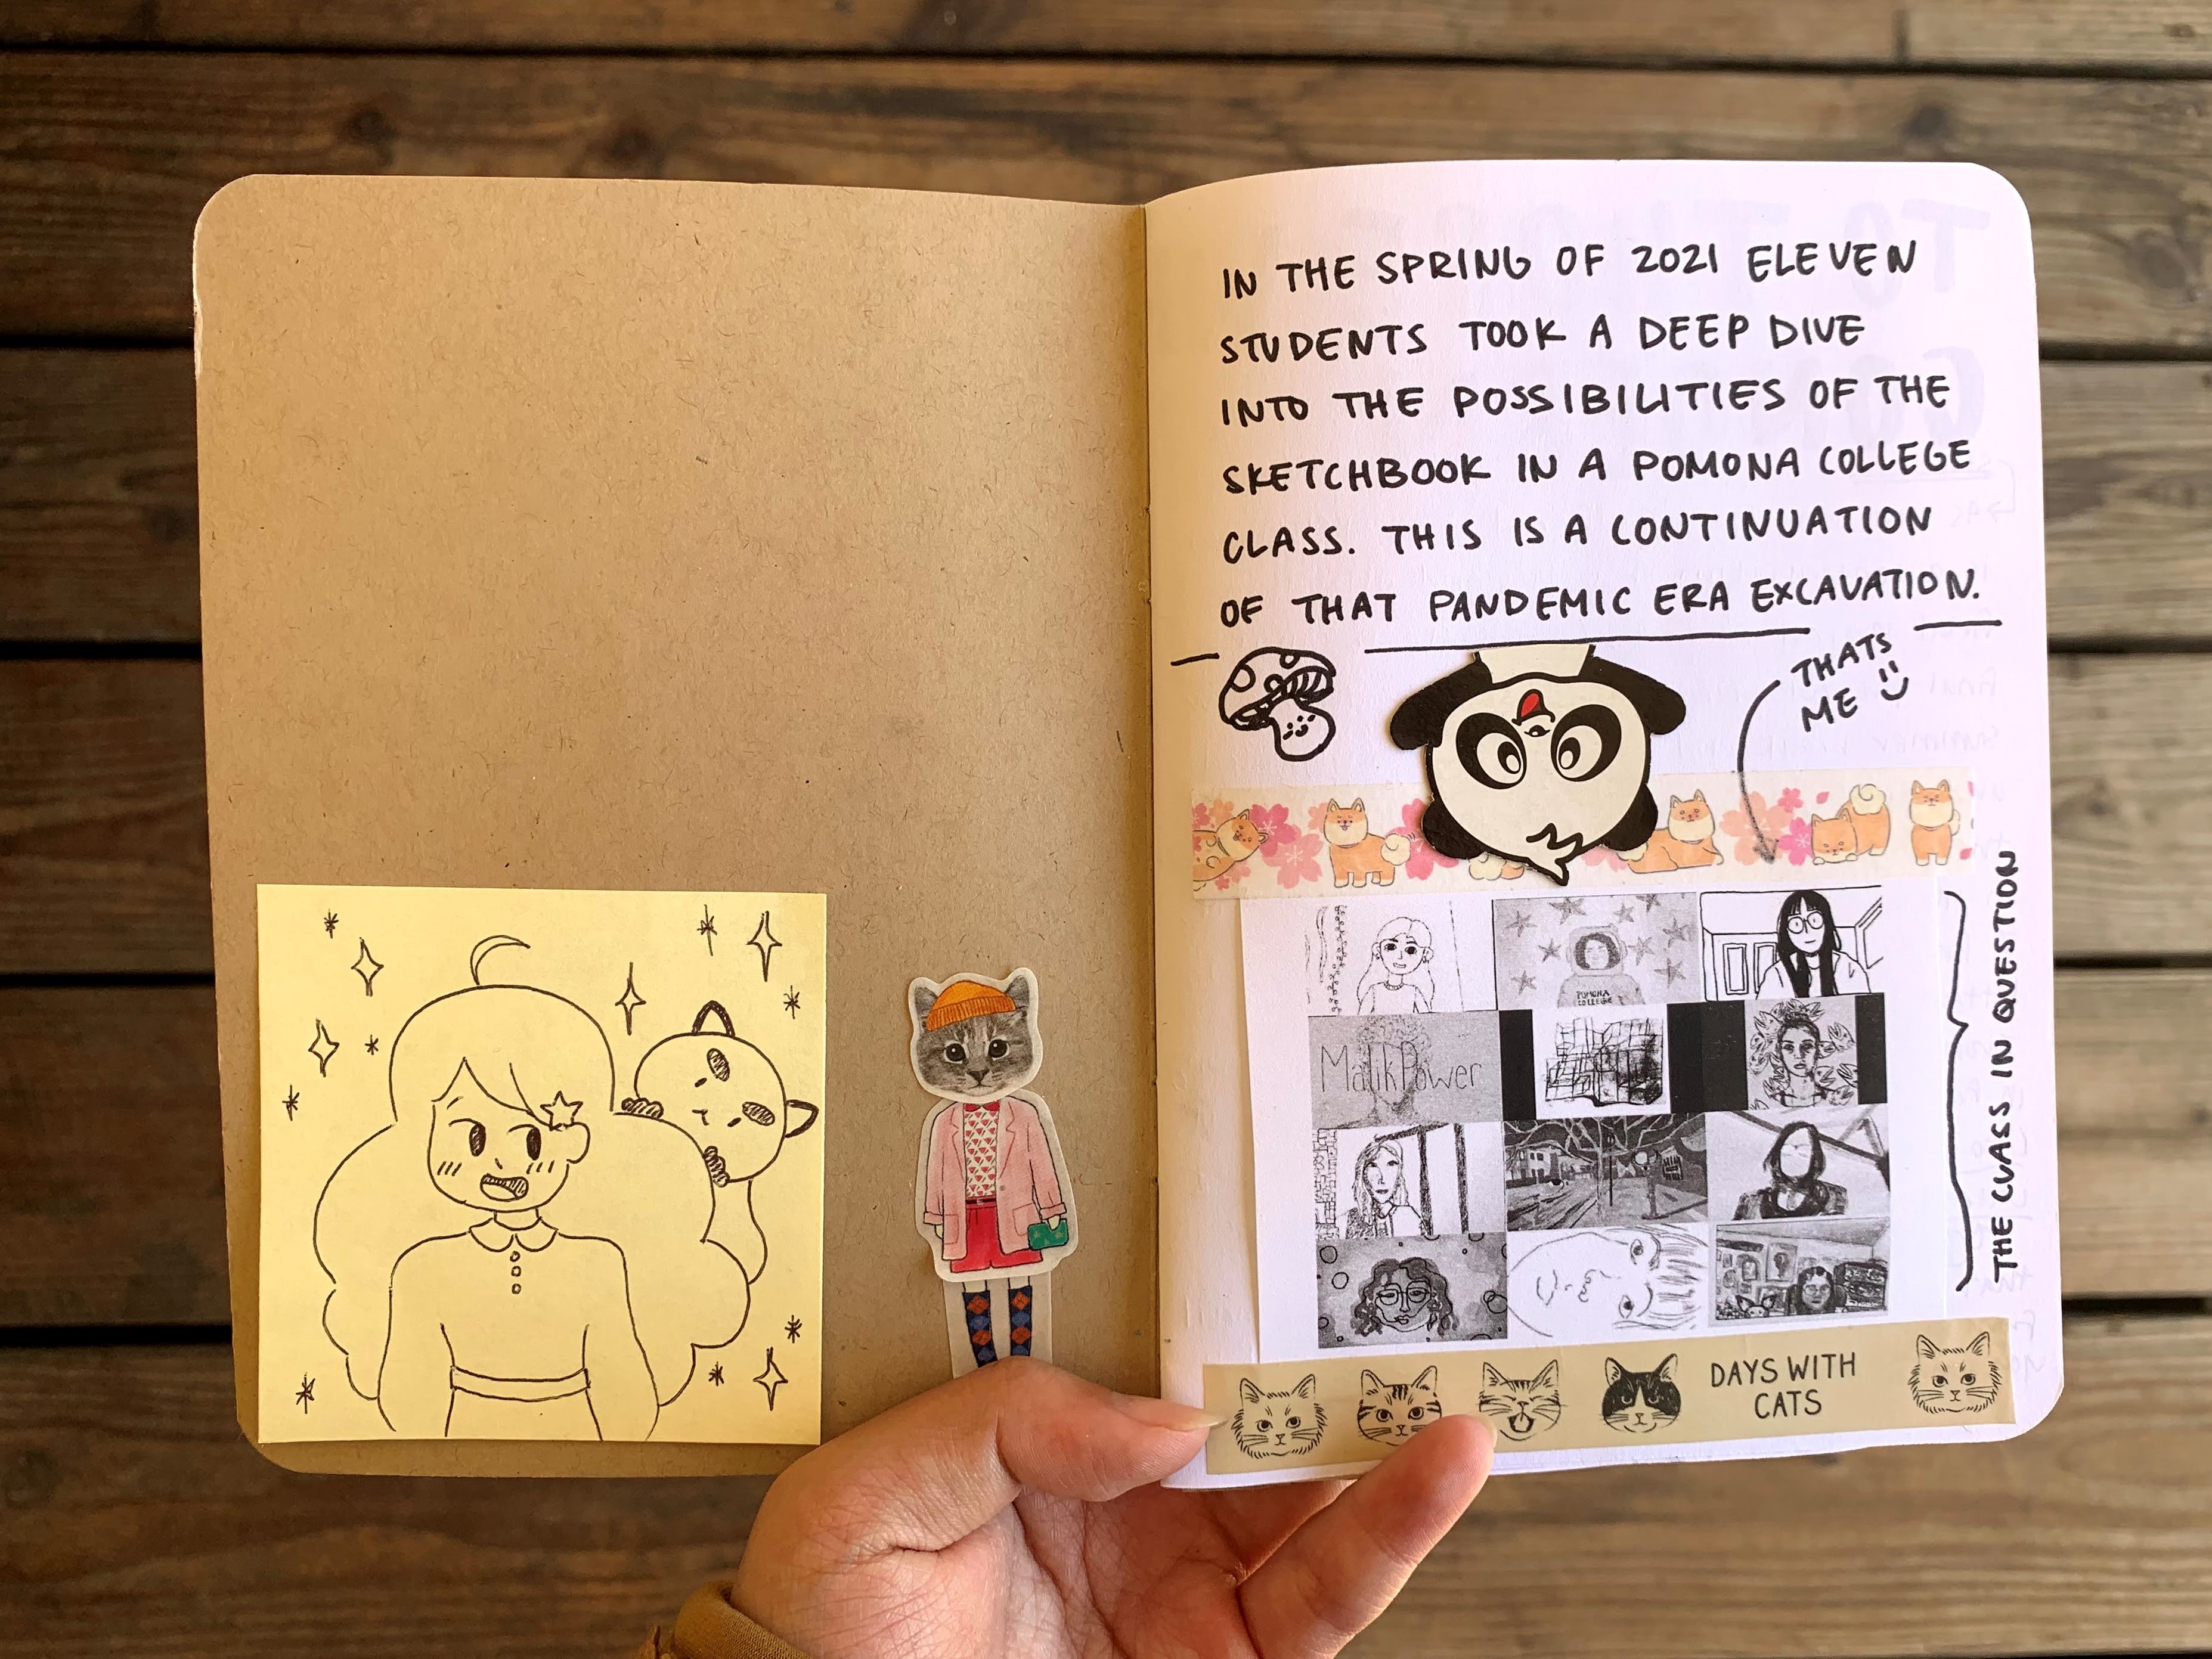 IN THE SPRING OF 2021 ELEVEN
STUDENTS TOOK A DEEP DIVE
INTO THE POSSIBILITIES OF THE
SKETCHBOOK IN A POMONA COLLEGE
CLASS. THIS IS A CONTINUATION
OF THAT PANDEMIC ERA EXCAVATION.
THATS
ME
POMONA
COLLEGE
MalikPower
THE CLASS IN QUESTION
DAYS WITH
CATS